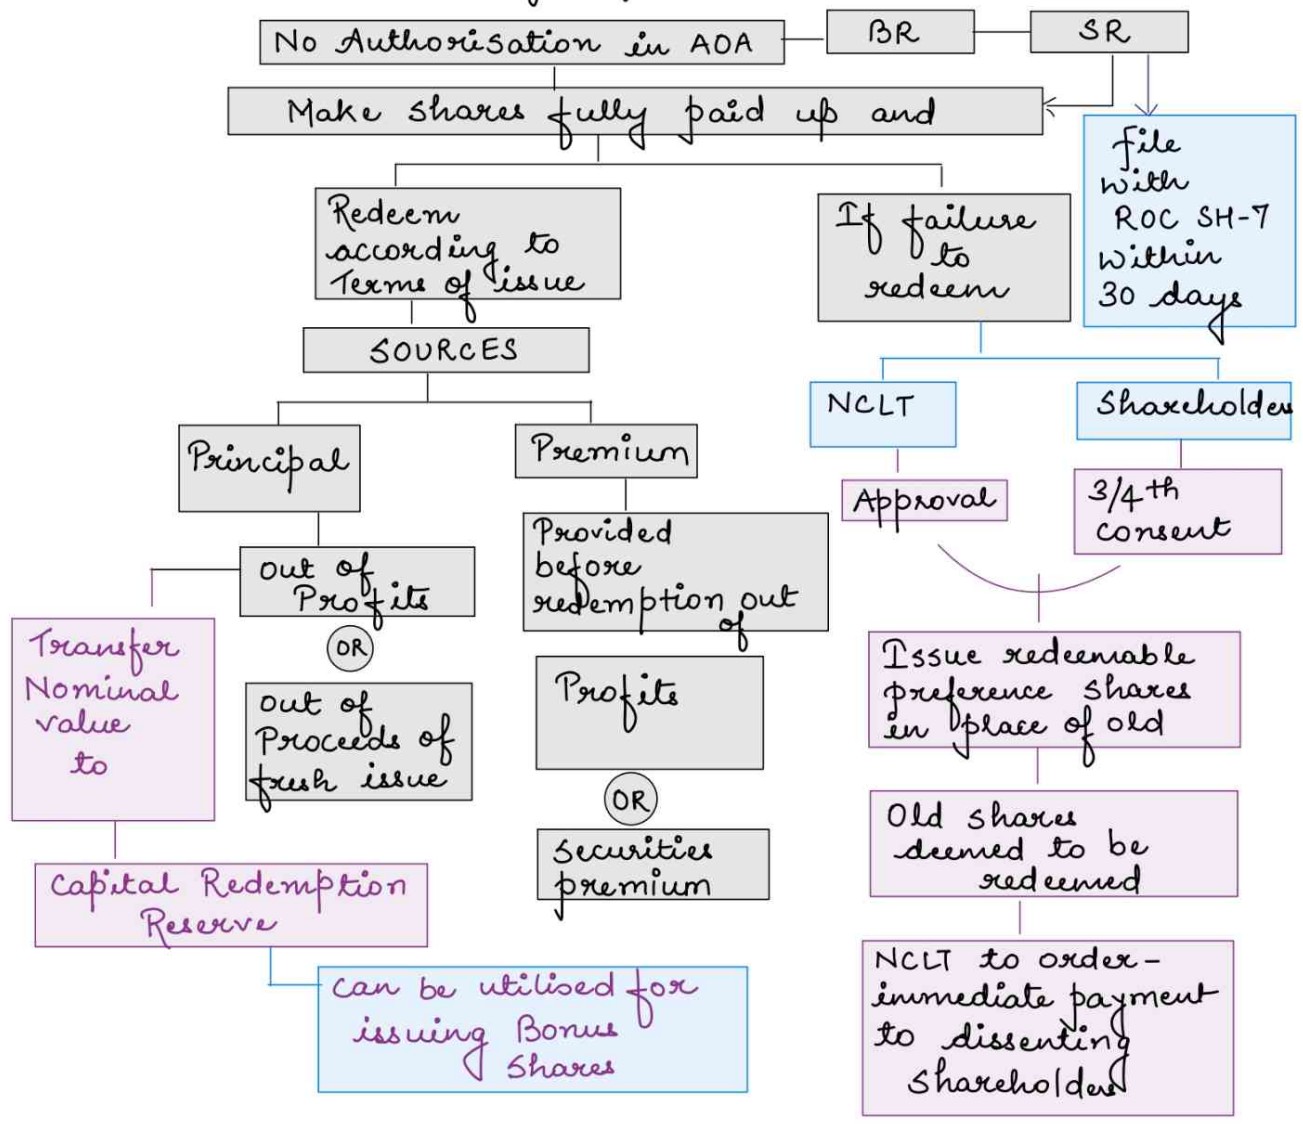 No Authorisation in AOA
BR
SR
Make shares fully paid up and
file
with
ROC SH-7
within
30 days
Redeem
according to
Terms of issue
If failure
to
redeem
SOURCES
NCLT
Shareholders
Principal
Premium
Approval
3/4th
consent
out of
Profits
OR
out of
Proceeds of
fresh issue
Provided
before
redemption out
of
Profits
OR
securities
premium
Transfer
Nominal
value
to
Capital Redemption
Reserve
can be utilised for
issuing Bonus
Shares
Issue redeemable
preference shares
in place of old
Old shares
deemed to be
redeemed
NCLT to order-
immediate payment
to dissenting
shareholders